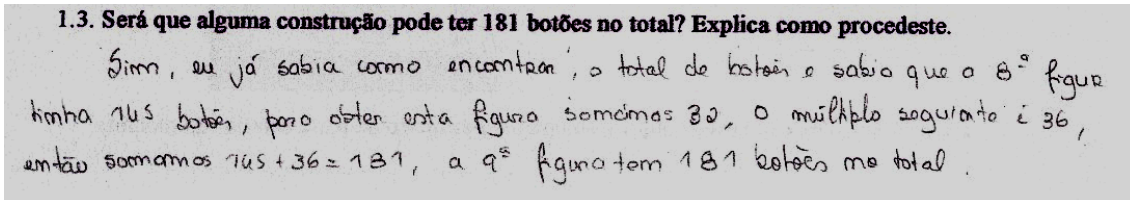 1.3. Será que alguma construção pode ter 181 botões no total? Explica como procedeste.
Sim, eu já sabia como encontrar, o total de botões e sabia que a 8ª figura
tinha 145 botões, para obter esta figura somámos 32, o múltiplo seguinte é 36,
então somamos 145 + 36 = 181, a 9ª figura tem 181 botões no total.